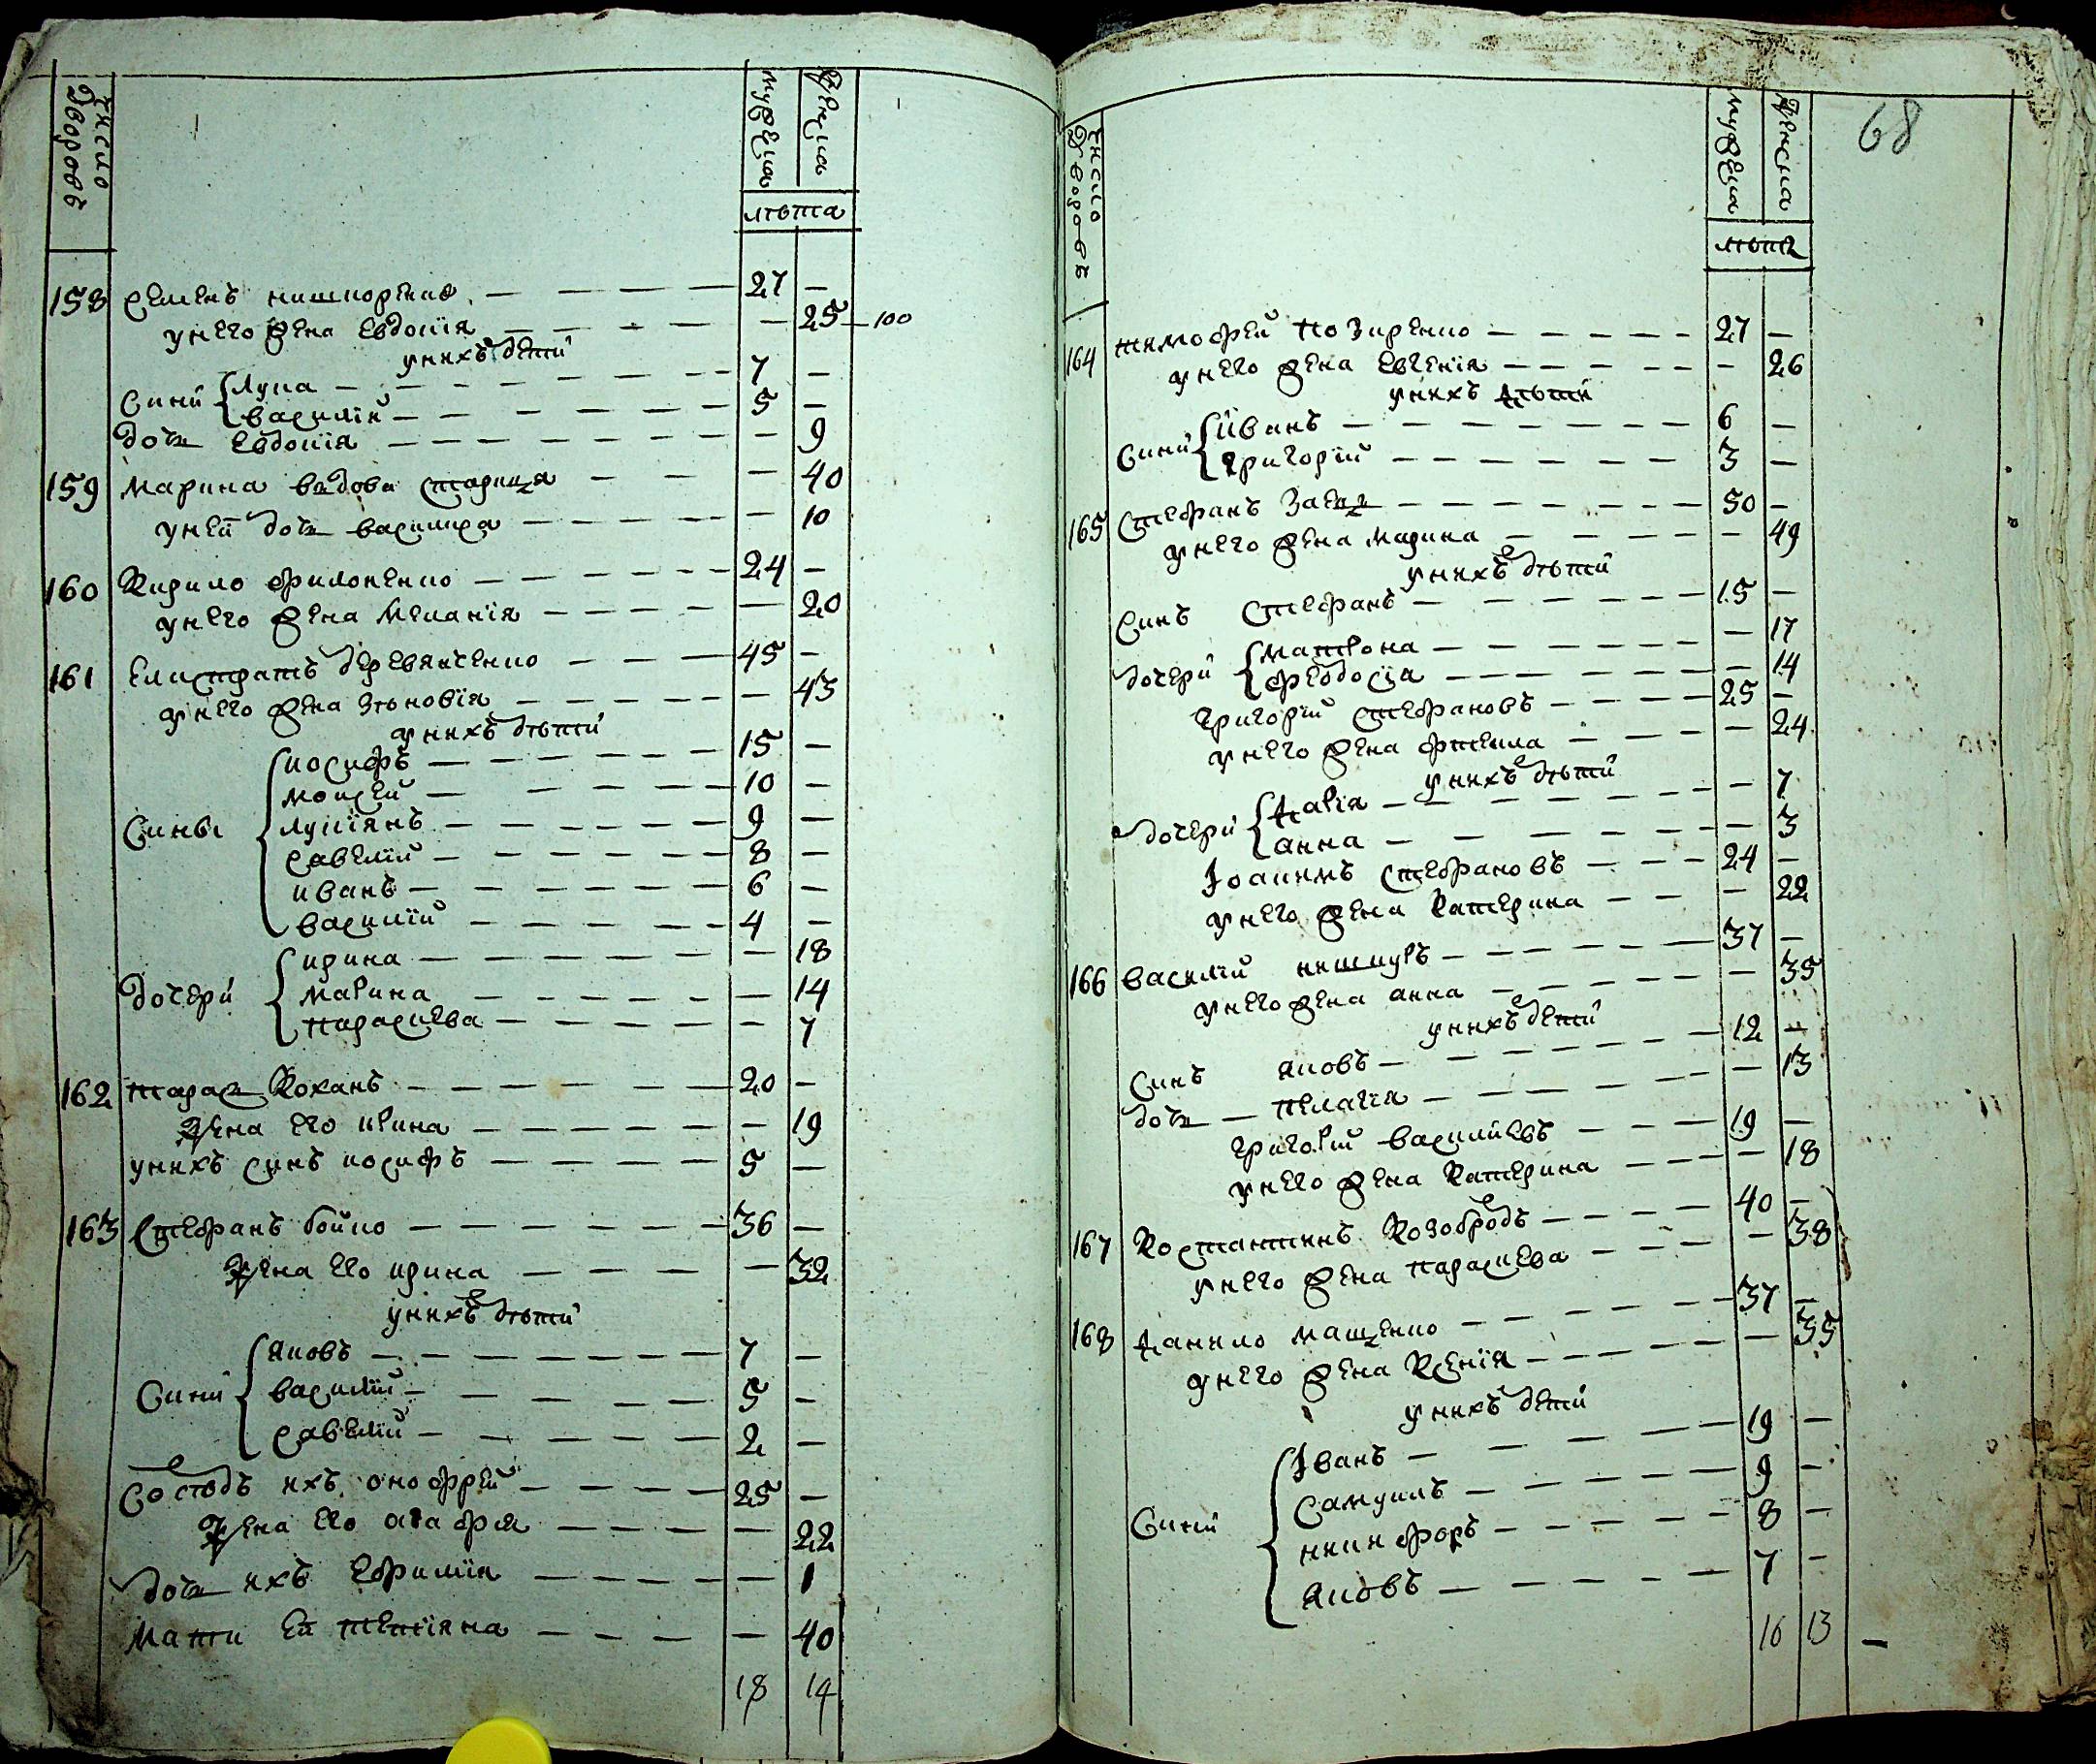 Число дворовъ
мужеска
женска
лѣта
158 Семенъ нишпоренко 27 —
у него жена Евдокія — 25 — 100
у нихъ дети
Сини Лука 7 —
василій 5 —
дочь Евдокія — 9
159 Марина вдова старица — 40
у ней дочь василиса — 10
160 Кирило филоненко 24 —
у него жена Меланія — 20
161 Елистратъ деревянченко 45 —
у него жена Зѣновія — 43
у нихъ дѣти
иосифъ 15 —
моисей 10 —
Сины лукіянъ 9 —
савелій 8 —
иванъ 6 —
василій 4 —
ирина — 18
дочери марина — 14
параскева — 7
162 тарас Коханъ 20 —
жена его ирина — 19
у нихъ синъ иосифъ 5 —
163 Стефанъ бойко 36 —
жена его ирина — 32
у нихъ дѣти
яковъ 7 —
Сини василій 5 —
савелій 2 —
Сосѣдъ ихъ онофрей 25 —
жена его агафія — 22
дочь ихъ Ефимія — 1
Мати ей тетіяна — 40
18 14
68
Число дворовъ
мужеска
женска
лѣта
164 тимофей позиренко 27 —
у него жена Евгенія — 26
у нихъ дѣти
Сини іванъ 6 —
григорій 3 —
165 Стефанъ Заецъ 50 —
у него жена марина — 49
у нихъ дѣти
Синъ Стефанъ 15 —
матрона — 17
дочери феодосія — 14
григорій стефановъ 25 —
у него жена фтекла — 24
у нихъ дѣти
дочери дарія — 7
анна — 3
Іоакимъ стефановъ 24 —
у него жена Катерина — 22
166 василій кишкуръ 37 —
у него жена анна — 35
у нихъ дети
Синъ яковъ 12 —
дочь пелагія — 13
григорій василиевъ 19 —
у него жена Катерина — 18
167 Костантинъ Козобродъ 40 —
у него жена параскева — 38
168 данило мащенко 37 —
у него жена Ксенія — 35
у нихъ дети
Іванъ 19 —
Самуилъ 9 —
Сини никифоръ 8 —
яковъ 7 —
16 13 —